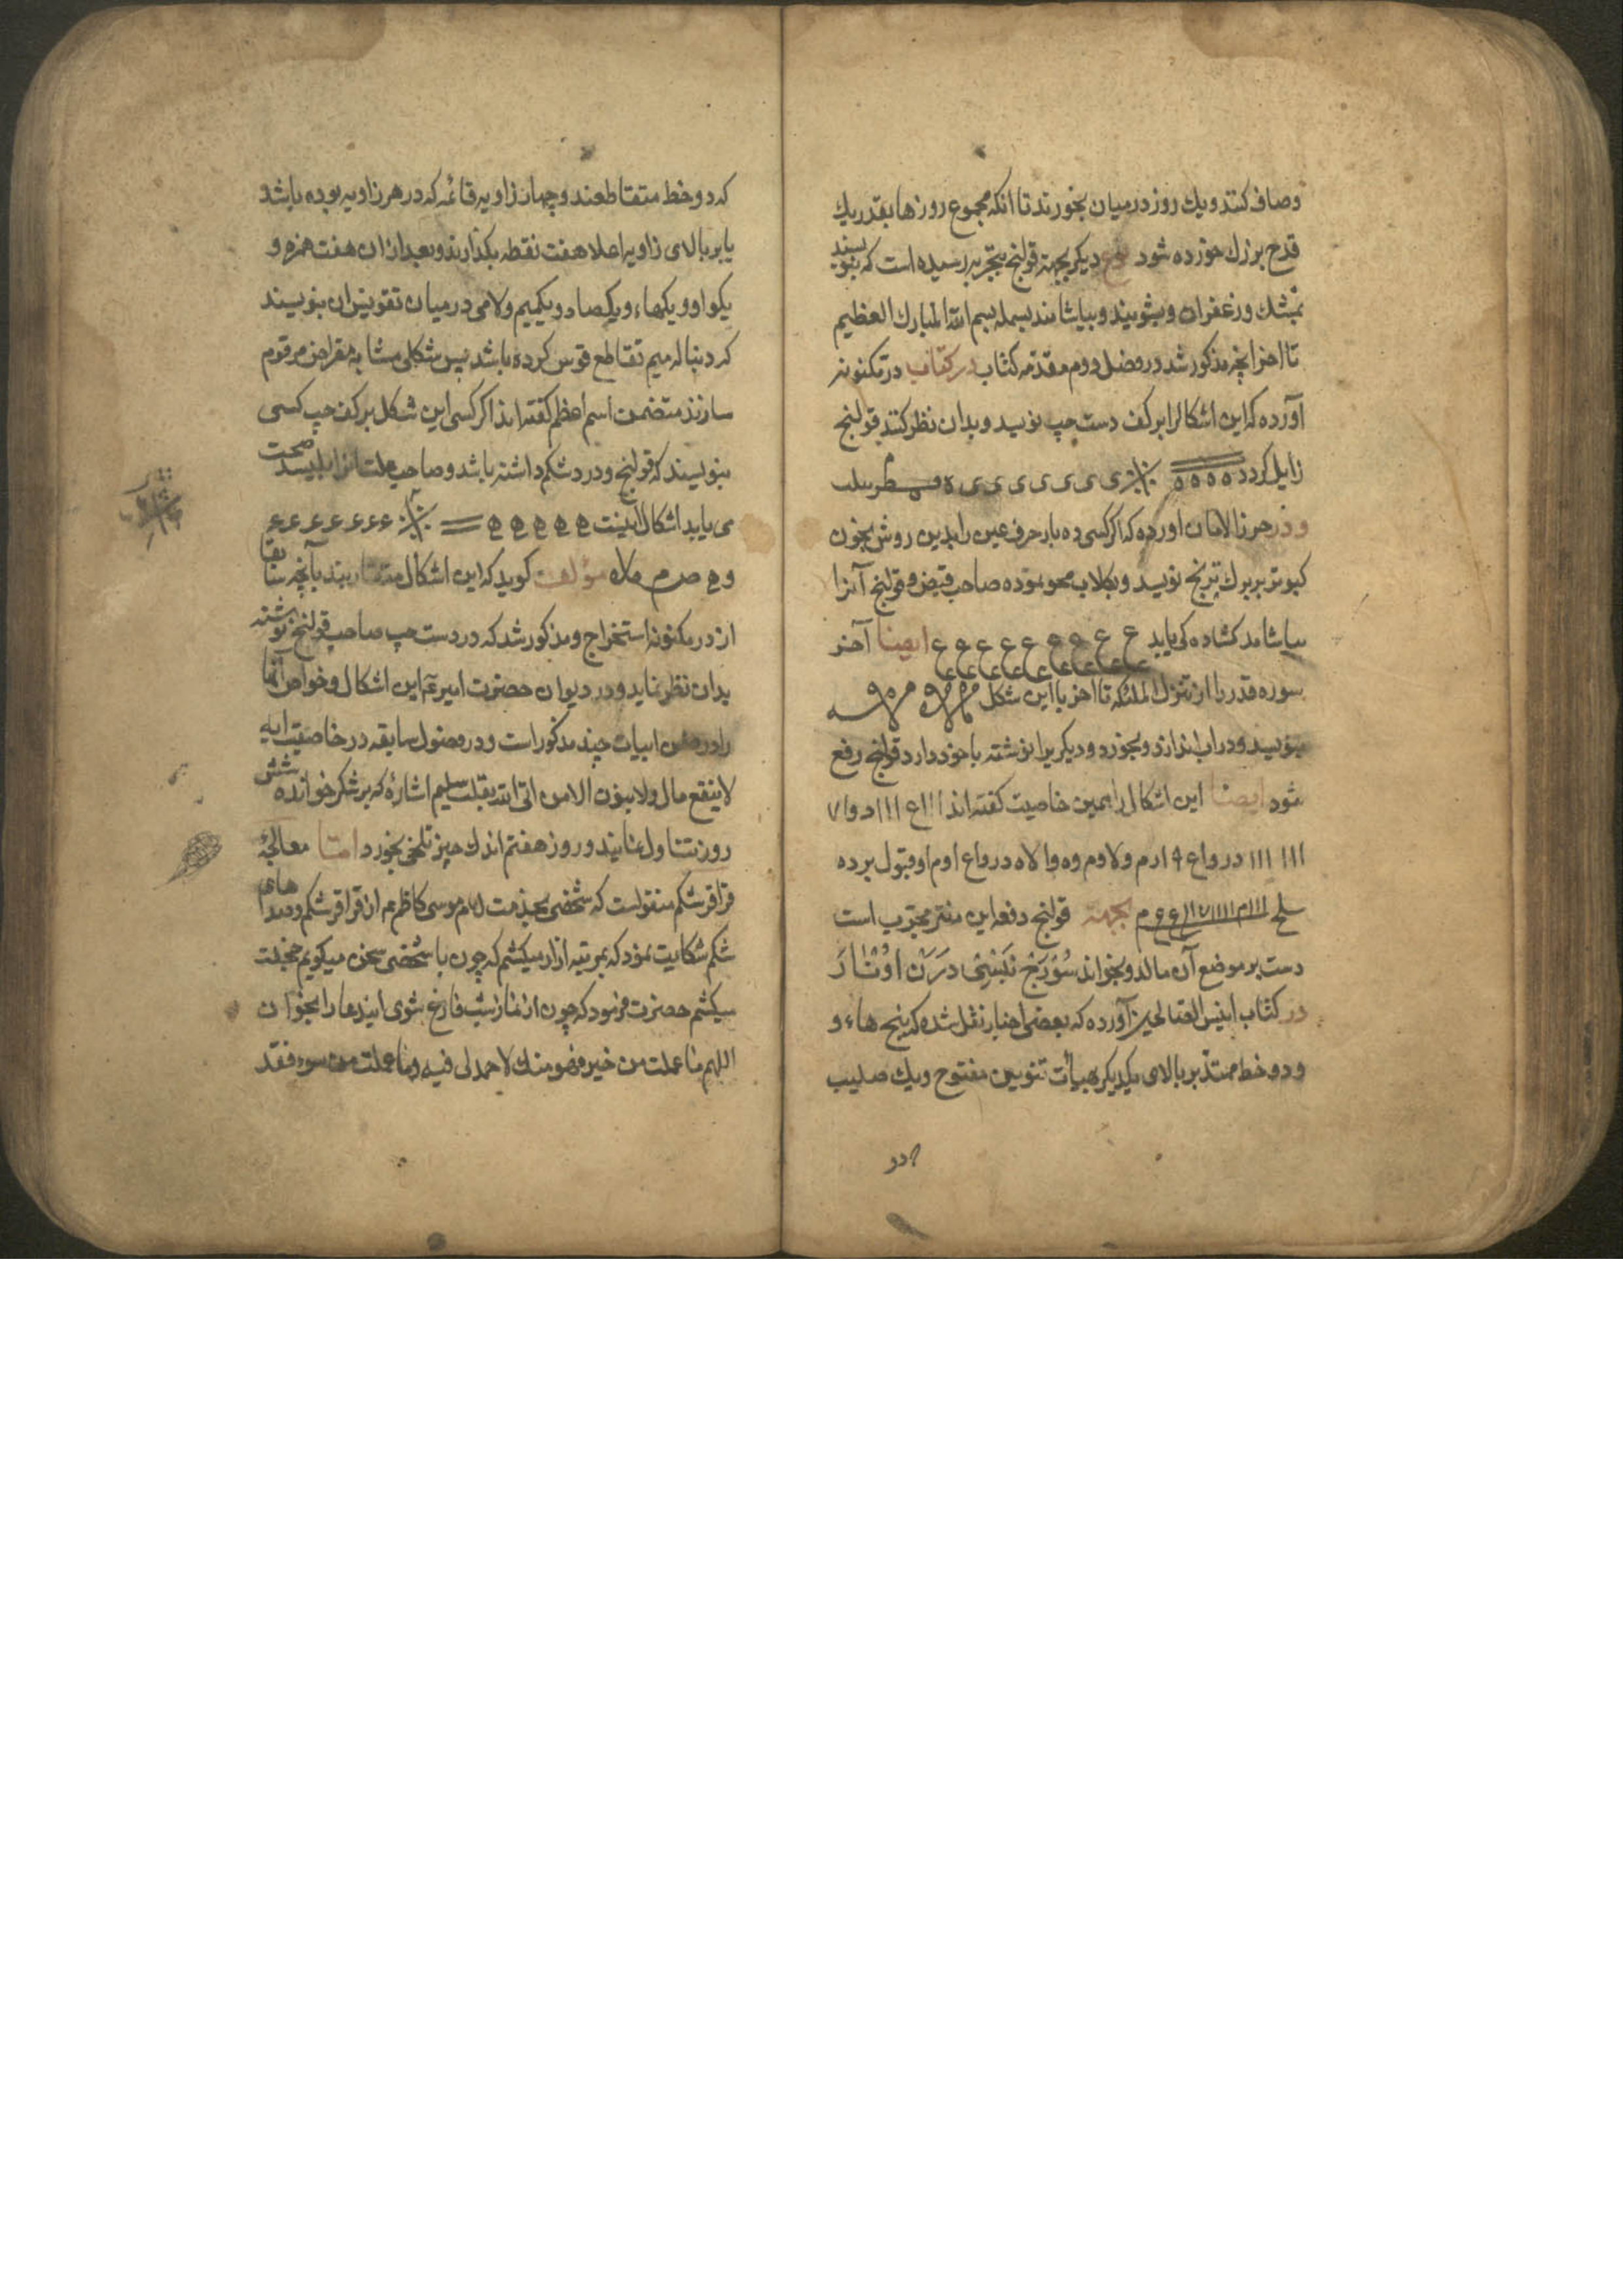 وصاف کنند ویك روز در میان بخورند تا انکه مجموع روزها بقدر یك
قدح بزرك خورده شود دیکر بجهة قولنج بتجربه رسیده است که بنویسند
بمشك وزعفران وبشویند وبیاشامند بسمله بسم الله المبارك العظیم
تا اخر انچه مذکور شد در فصل دوم مقدمه کتاب در کتاب در مکنونه
آورده که این اشکالرا بر کف دست چپ نویسد وبدان نظر کند قولنج
زایل کردد ه ه ه ه ی ی ی ی ی ی ی
ودر حرز الامان اورده که اکر کسی ده بار حرف عین را بدین روش بخون
کبوتر بر برك ترنج نویسد وبکلاب محو نموده صاحب قبض وقولنج آنرا
بیاشامد کشاده کی یابد ع ع ع ع ع ع ع ع ع ایضا آخر
سوره قدر را از تنزل الملئکه تا اخر با این شکل
بنویسد ودر اب اندازد وبخورد ودیکر یرا نوشته با خود دارد قولنج رفع
شود ایضا این اشکال را همین خاصیت کفته اند ااا ع ااا د و ا ۷
ااا ااا در واع ۴ ارم ولاوم وه والاه درواع اوم او قبول برده
بجهة قولنج دفعه این منتر مجرب است
دست بر موضع آن مالد وبخواند
در کتاب انیس العتالحین آورده که بعضی اخبار نقل شده که پنج هاء و
ودو خط ممتد بر بالای یکدیکر بهیأت تنوین مفتوح ویك صلیب
که دو
که دو خط متقاطعند وچهار زاویه قائمه که در هر زاویه بوده باشد
یا بر بالای زاویه اعلا هفت نقطه بکذارند وبعد از ان هفت همزه و
یکواو ویکهاء ویکصاد ویکمیم ولامی در میان تقویزان بنویسند
که دنباله میم تقاطع قوس کرده باشد پس شکلی مشابه مقراض مرقوم
سازند متضمن اسم اعظم کفته اند اکر کسی این شکل بر کف چپ کسی
بنویسند که قولنج ودرد شکم داشته باشد وصاحب علت انرا بلیسد صحت
می یابد اشکال اینست ھ ھ ھ ھ ھ ء ء ء ء ء ء ء
و ھ ص م ملاه مؤلف کوید که این اشکال متقاربند بآنچه سابقا
از در مکنونه استخراج ومذکور شد که در دست چپ صاحب قولنج نوشته
بدان نظر نماید ودر دیوان حضرت امیر ع این اشکال وخواص آنها
را در ضمن ابیات چند مذکور است ودر فصول سابقه در خاصیت ایه
لاینفع مال ولابنون الا من اتی الله بقلب سلیم اشاره که بر شکر خوانده شش
روز تناول نمایند وروز هفتم اندك چیز تلخی بخورد امّا معالجهٔ
قراقر شکم منقولست که شخصی بخدمت امام موسی کاظم ع از قراقر شکم ودردهای
شکم شکایت نمود که بمرتبه ازار میکشم که چون با شخصی سخن میکویم خجلت
میکشم حضرت فرمود که چون از نماز شب فارغ شوی ایندعا را بخوان
اللهم ما عملت من خیر فهو منك لا حمد لی فیه وما عملت من سوء فقد